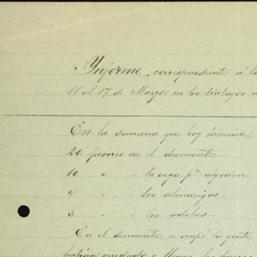 Informe correspondiente á la
11 al 17 de Mayo: en los trabajos
En la semana que hoy termina
20 peones en el desmonte.
10 " " la siga pª algodon
4 " " los almacigas
3 " " los adobes.
En el desmonte se ocupó la gente